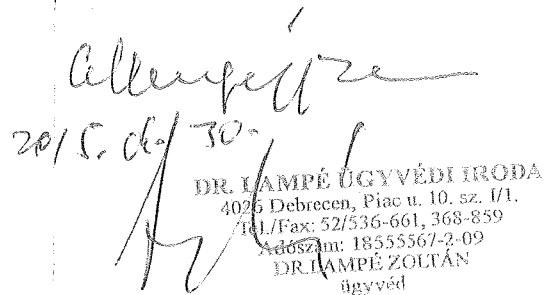 ellenjegyzem
2015. 06. 30.
DR. LAMPÉ ÜGYVÉDI IRODA
4026 Debrecen, Piac u. 10. sz. I/1.
Tel./Fax: 52/536-661, 368-859
Adószám: 18555567-2-09
DR.LAMPÉ ZOLTÁN
ügyvéd